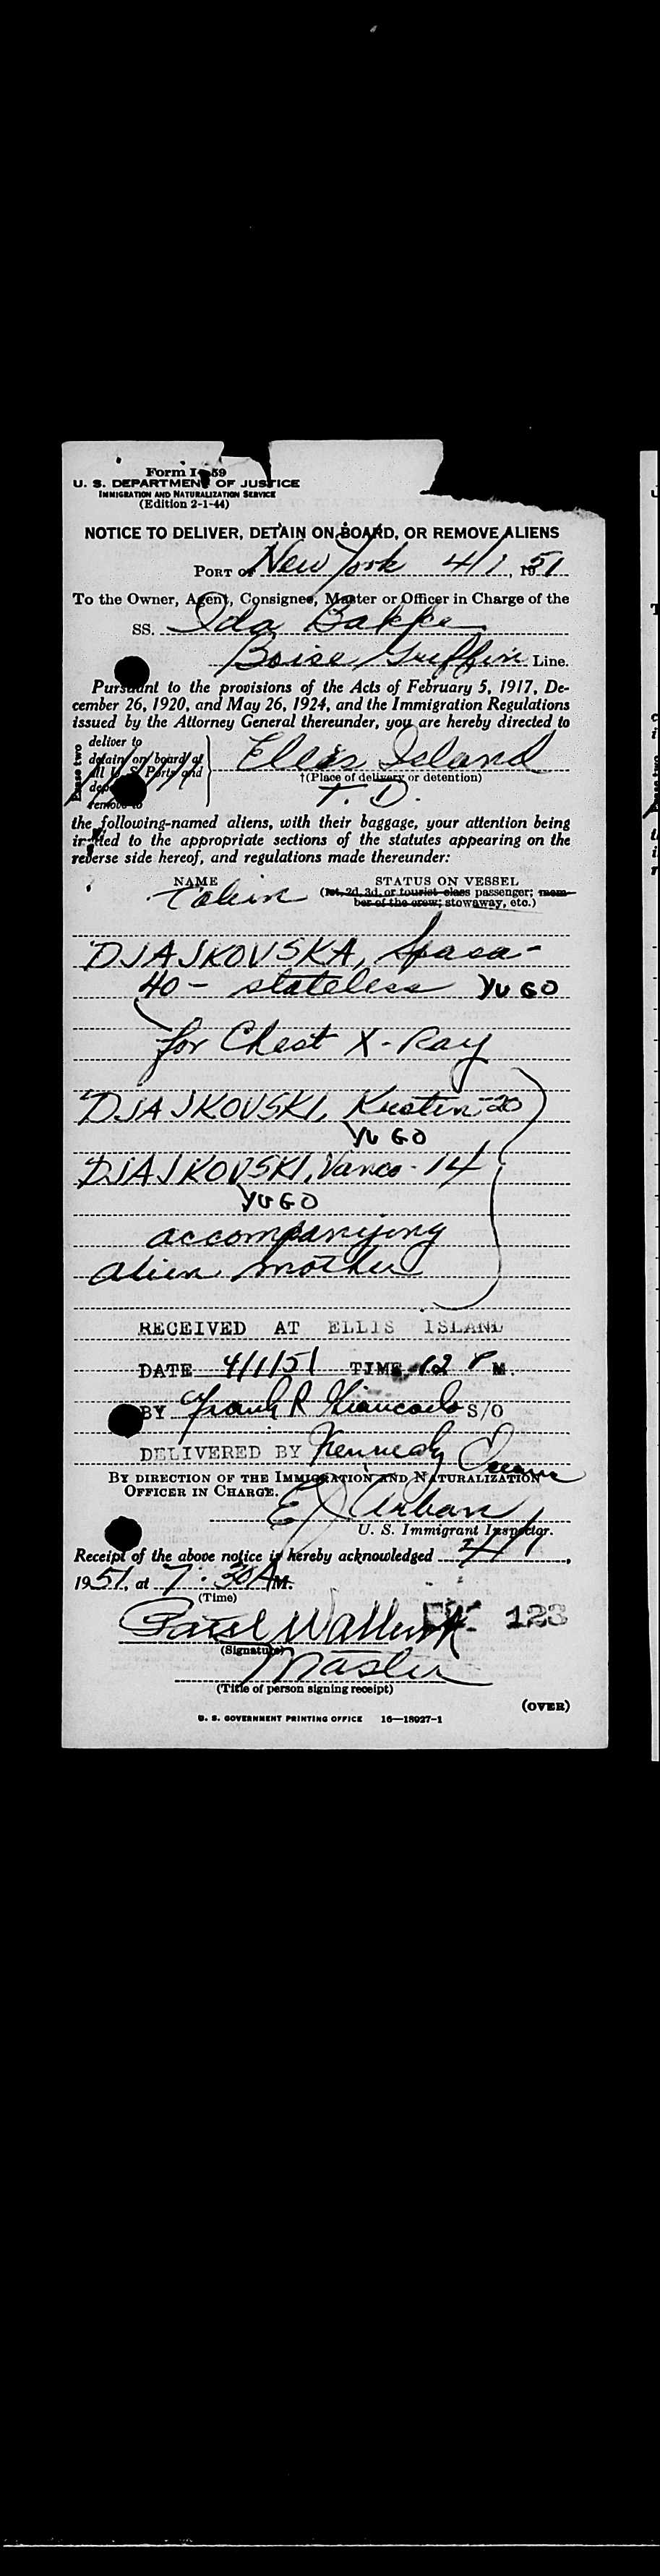 Form I-259
U. S. DEPARTMENT OF JUSTICE
IMMIGRATION AND NATURALIZATION SERVICE
(Edition 2-1-44)
NOTICE TO DELIVER, DETAIN ON BOARD, OR REMOVE ALIENS
PORT OF New York 4/1, 1951
To the Owner, Agent, Consignee, Master or Officer in Charge of the
SS. Ida Bakke
Boise Griffin Line.
Pursuant to the provisions of the Acts of February 5, 1917, De-
cember 26, 1920, and May 26, 1924, and the Immigration Regulations
issued by the Attorney General thereunder, you are hereby directed to
Erase two
deliver to
detain on board at
all U. S. Ports and
remove to
Ellis Island
†(Place of delivery or detention)
T. D.
the following-named aliens, with their baggage, your attention being
invited to the appropriate sections of the statutes appearing on the
reverse side hereof, and regulations made thereunder:
NAME STATUS ON VESSEL
Cabin (1st, 2d, 3d, or tourist class passenger; mem-
ber of the crew; stowaway, etc.)
DJAJKOVSKA, Spasa-
40 - stateless YUGO
for Chest X-Ray
DJAJKOVSKI, Kristin-20
YUGO
DJAJKOVSKI, Vanco - 14
YUGO
accompanying
alien mother
RECEIVED AT ELLIS ISLAND
DATE 4/1/51 TIME 12 P M.
BY Frank R Giancarlo S/O
DELIVERED BY Kennedy
BY DIRECTION OF THE IMMIGRATION AND NATURALIZATION
OFFICER IN CHARGE.
E J Urban
U. S. Immigrant Inspector.
Receipt of the above notice is hereby acknowledged 4/1,
1951, at 7:30 A M.
(Time)
128
(Signature)
Master
(Title of person signing receipt)
(OVER)
U. S. GOVERNMENT PRINTING OFFICE 16—18927-1